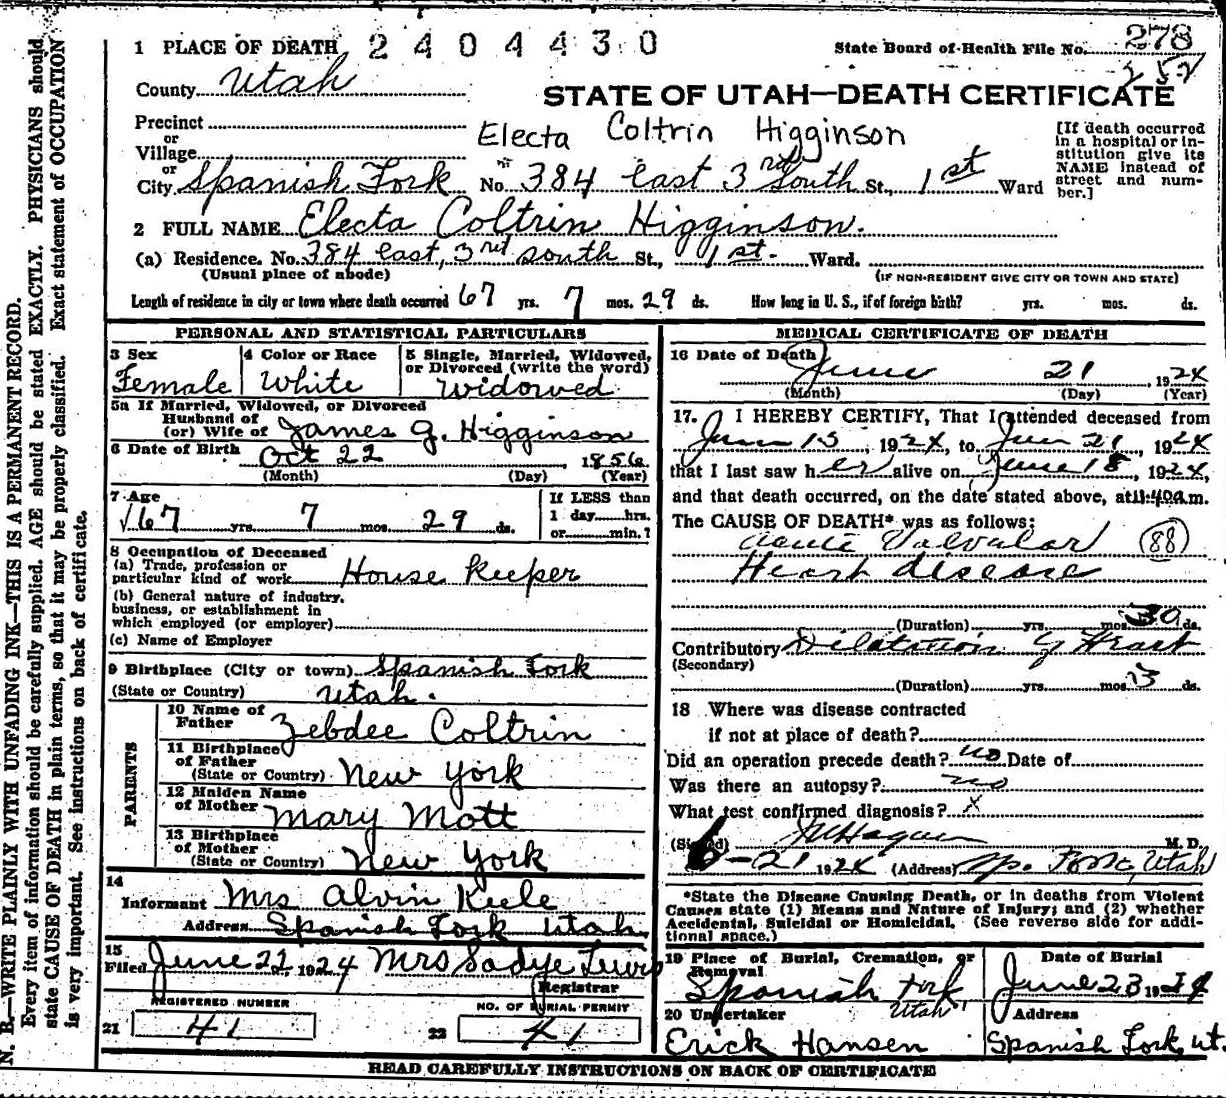 1 PLACE OF DEATH 2404430 State Board of Health File No. 278
County Utah 252
STATE OF UTAH—DEATH CERTIFICATE
Precinct
or
Village
Electa Coltrin Higginson
or
City Spanish Fork No. 384 East 3rd South St., 1st Ward
[If death occurred in a hospital or institution give its NAME instead of street and number.]
2 FULL NAME Electa Coltrin Higginson.
(a) Residence. No. 384 East, 3rd South St., 1st. Ward.
(Usual place of abode) (IF NON-RESIDENT GIVE CITY OR TOWN AND STATE)
Length of residence in city or town where death occurred 67 yrs. 7 mos. 29 ds. How long in U. S., if of foreign birth? yrs. mos. ds.
PERSONAL AND STATISTICAL PARTICULARS
3 Sex Female
4 Color or Race White
5 Single, Married, Widowed, or Divorced (write the word) Widowed
5a If Married, Widowed, or Divorced
Husband of
(or) Wife of James G. Higginson
6 Date of Birth Oct 22, 1856
(Month) (Day) (Year)
7 Age 67 yrs. 7 mos. 29 ds.
If LESS than
1 day......hrs.
or......min.?
8 Occupation of Deceased
(a) Trade, profession or
particular kind of work House Keeper
(b) General nature of industry,
business, or establishment in
which employed (or employer)
(c) Name of Employer
9 Birthplace (City or town) Spanish Fork
(State or Country) Utah.
PARENTS
10 Name of
Father Zebdee Coltrin
11 Birthplace
of Father
(State or Country) New York
12 Maiden Name
of Mother Mary Mott
13 Birthplace
of Mother
(State or Country) New York
14
Informant Mrs Alvin Keele
Address Spanish Fork Utah
15
Filed June 21, 1924 Mrs Sadye Lewis
Registrar
REGISTERED NUMBER NO. OF BURIAL PERMIT
21 41 22 41
MEDICAL CERTIFICATE OF DEATH
16 Date of Death June 21, 1924
(Month) (Day) (Year)
17. I HEREBY CERTIFY, That I attended deceased from
June 15, 1924, to June 21, 1924
that I last saw her alive on June 18, 1924,
and that death occurred, on the date stated above, at 11:40a m.
The CAUSE OF DEATH* was as follows:
Acute Valvular (88)
Heart disease
(Duration) yrs. mos. 30 ds.
Contributory Dilatation of Heart
(Secondary)
(Duration) yrs. mos. 3 ds.
18 Where was disease contracted
if not at place of death?
Did an operation precede death? no Date of
Was there an autopsy? no
What test confirmed diagnosis? x
(Signed) M. D.
6-21 1924 (Address) Sp. Fork, Utah
*State the Disease Causing Death, or in deaths from Violent
Causes state (1) Means and Nature of Injury; and (2) whether
Accidental, Suicidal or Homicidal. (See reverse side for addi-
tional space.)
19 Place of Burial, Cremation, or
Removal
Spanish Fork
Utah
Date of Burial
June 23 1924
20 Undertaker
Erick Hansen
Address
Spanish Fork, Ut.
READ CAREFULLY INSTRUCTIONS ON BACK OF CERTIFICATE
N. B.—WRITE PLAINLY WITH UNFADING INK—THIS IS A PERMANENT RECORD.
Every item of information should be carefully supplied. AGE should be stated EXACTLY. PHYSICIANS should
state CAUSE OF DEATH in plain terms, so that it may be properly classified. Exact statement of OCCUPATION
is very important. See instructions on back of certificate.